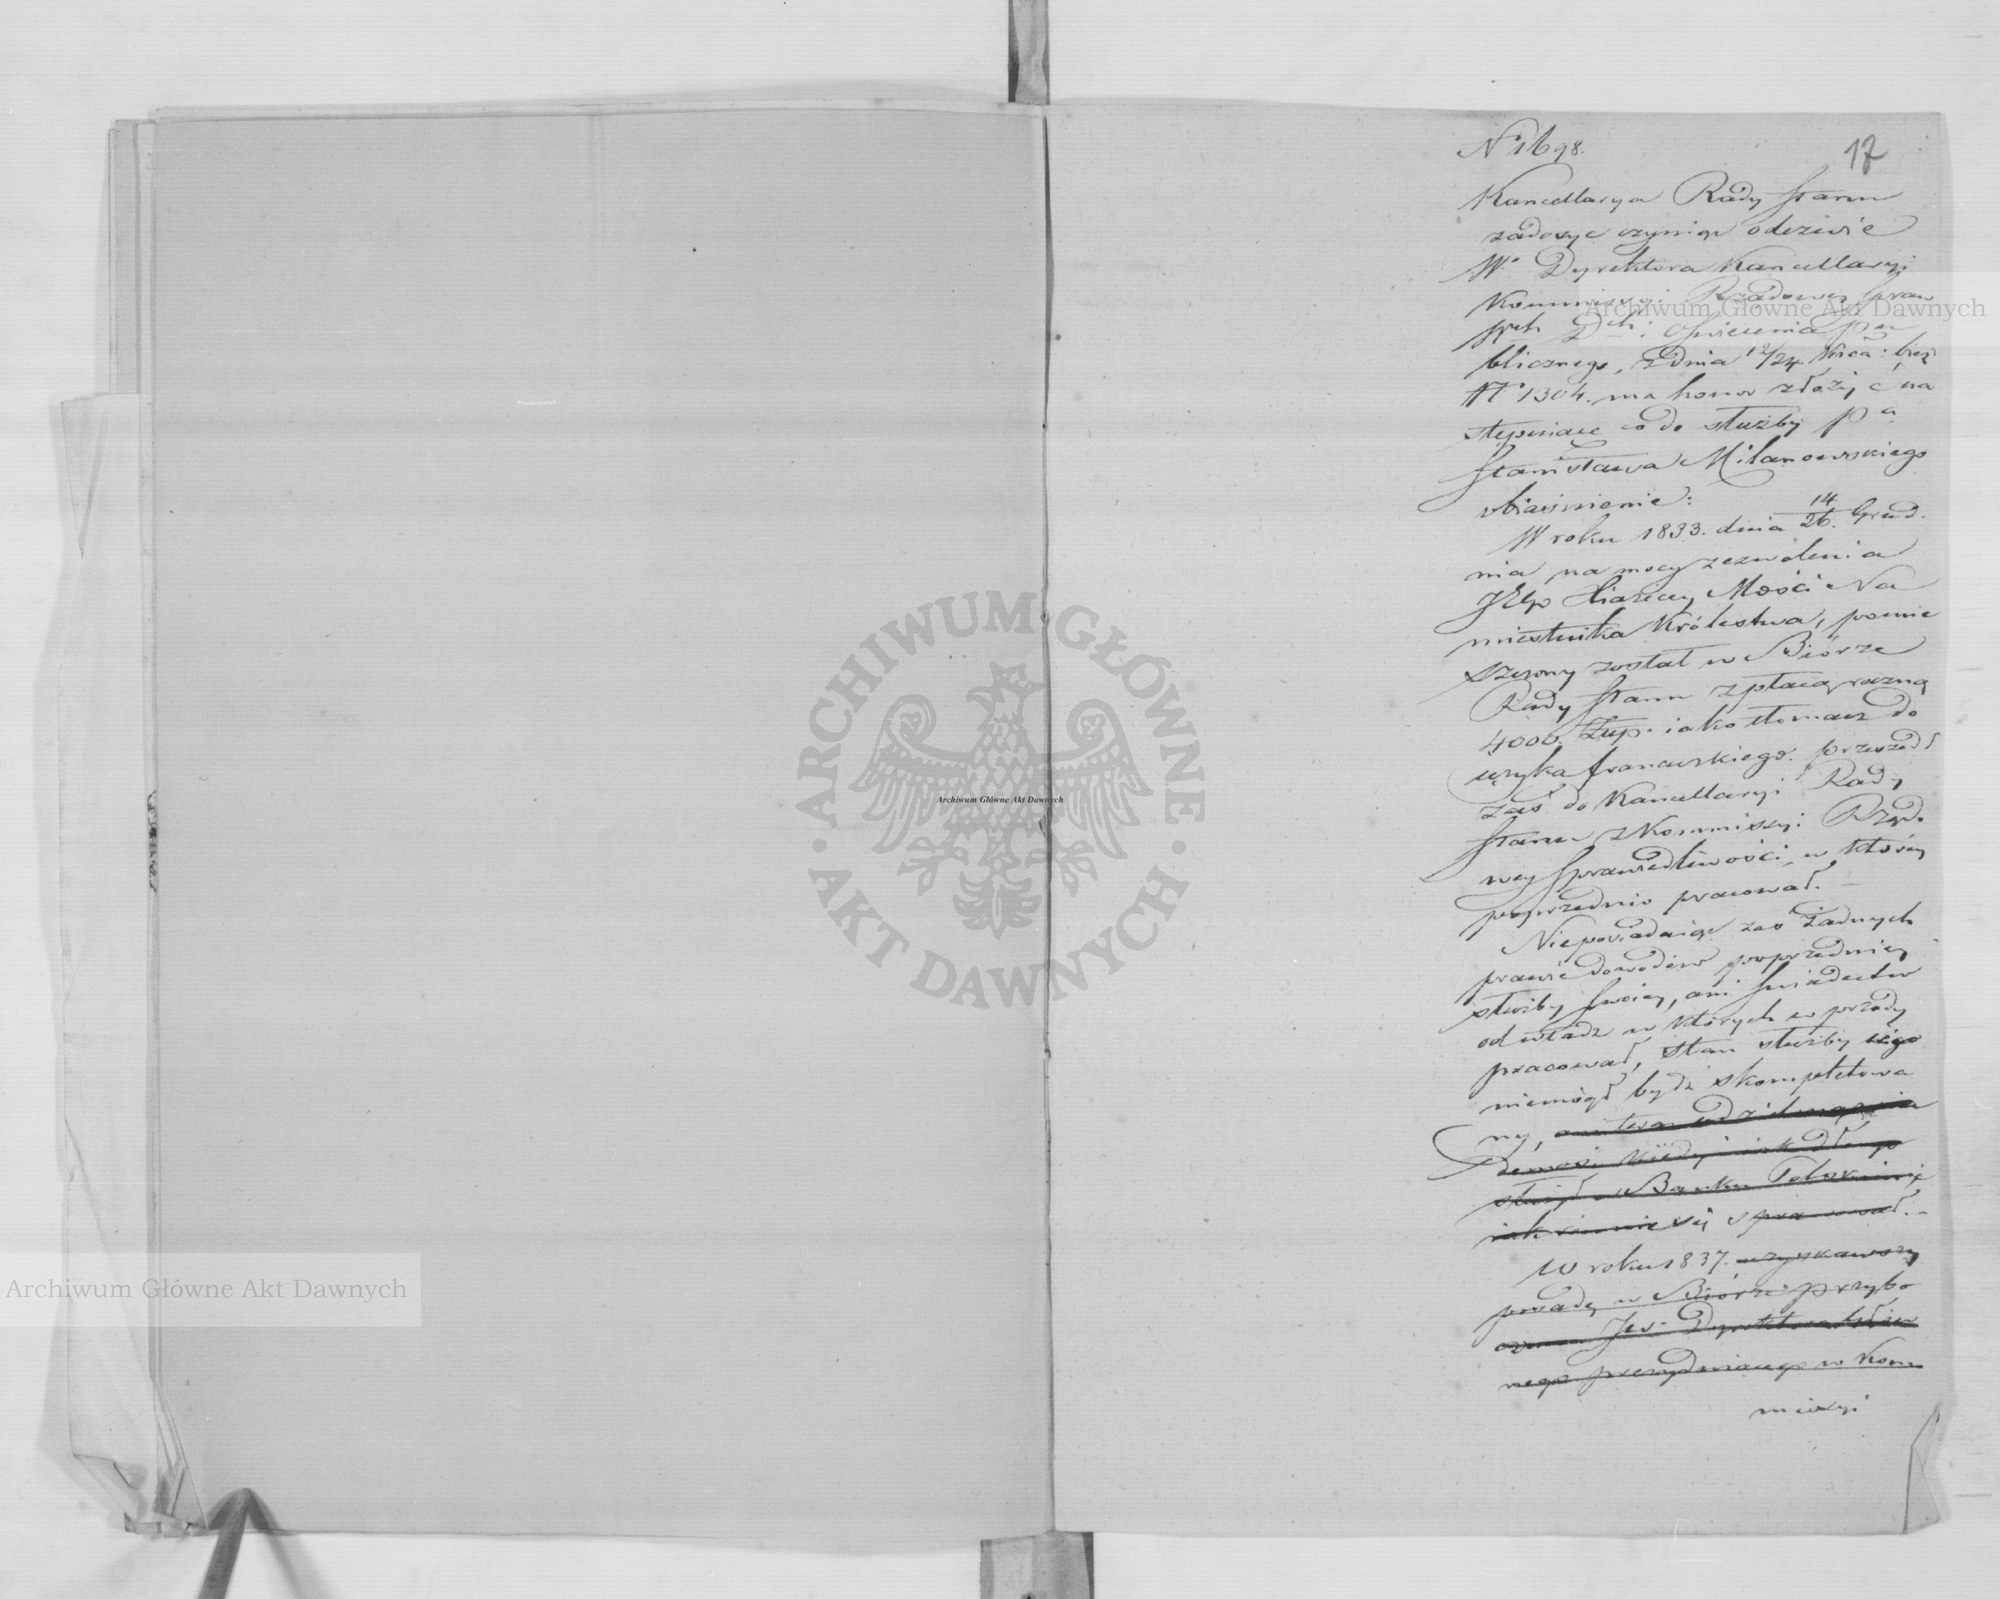 17
N° 1698.
Kancellarya Rady Stanu
zadosyc czyniąc odezwie
W° Dyrektora Kancellaryi
Kommissyi Rządowey Spraw
Wch Dch: Oświecenia Pu
blicznego, z dnia 12/24. b.
N° 1304. ma honor złożyć na
stępuiące co do służby Pa
Stanisława Milanowskiego
obiaśnienie:
W roku 1833. dnia 14/26. Grud.
nia na mocy zezwolenia
JEgo Xiążęcey Mości Na
miestnika Królestwa, pomie
szczony został w Biórze
Rady Stanu z płacą roczną
4000. Złp. iako tłomacz do
ięzyka francuskiego. przeszedł
zaś do Kancellaryi Rady
Stanu z Kommissyi Rządo
wey Sprawiedliwości, w którey
poprzednio pracował.
Nieposiadaiąc zaś żadnych
prawie dowodów poprzedniey
służby swoiey, ani świadectw
od władz w których w przódy
pracował, stan służby iego
niemógł bydź skompletowa
ny,
kiedy i iak długo
służył w Banku Polskim i
iak się sprawował.
W roku 1837. uzyskawszy
posadę w Biórze przybo
cznem JW. Dyrektora Głów
nego prezyduiącego w Kom
missyi
Archiwum Główne Akt Dawnych
Archiwum Główne Akt Dawnych
Archiwum Główne Akt Dawnych
ARCHIWUM GŁÓWNE
AKT DAWNYCH